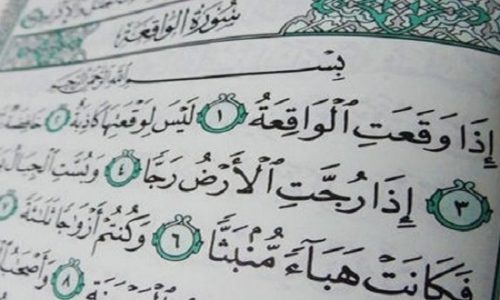 سُورَةُ الوَاقِعَةِ
بِسْمِ اللَّهِ الرَّحْمَٰنِ الرَّحِيمِ
إِذَا وَقَعَتِ ٱلْوَاقِعَةُ ١ لَيْسَ لِوَقْعَتِهَا كَاذِبَةٌ ٢ خَافِضَةٌ
٣ إِذَا رُجَّتِ ٱلْأَرْضُ رَجًّا ٤ وَبُسَّتِ ٱلْجِبَالُ
فَكَانَتْ هَبَآءً مُّنۢبَثًّا ٦ وَكُنتُمْ أَزْوَٰجًا ثَلَٰثَةً ٧
٨ وَأَصْحَٰبُ